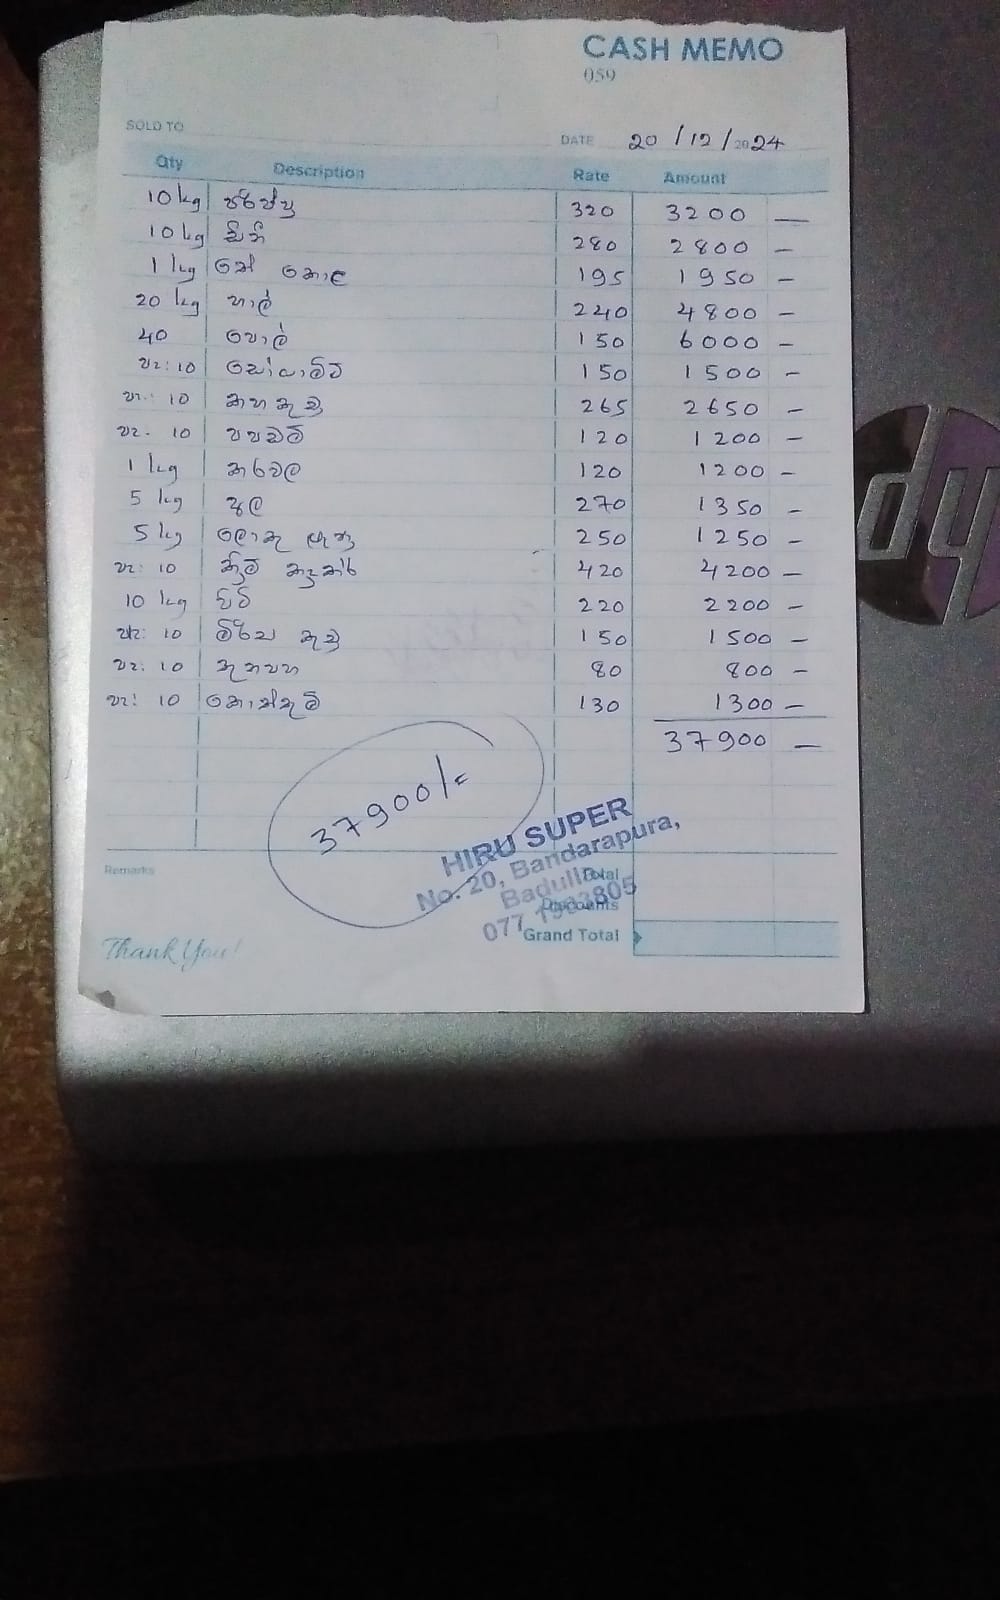 CASH MEMO
059
SOLD TO
DATE 20/12/2024
Qty Description Rate Amount
10 kg පරිප්පු 320 3200 —
10 kg සීනි 280 2800 —
1 kg තේ කොළ 195 1950 —
20 kg හාල් 240 4800 —
40 පොල් 150 6000 —
පැ: 10 සෝයාමීට් 150 1500 —
පැ: 10 කහ කුඩු 265 2650 —
පැ. 10 පපඩම් 120 1200 —
1 kg කරවල 120 1200 —
5 kg අල 270 1350 —
5 kg ලොකු ලූණු 250 1250 —
පැ: 10 ක්‍රීම් ක්‍රැකර් 420 4200 —
10 kg පිටි 220 2200 —
පැ: 10 මිරිස් කුඩු 150 1500 —
පැ: 10 තුනපහ 80 800 —
පැ: 10 කොත්තමල්ලි 130 1300 —
37900 —
37900/=
HIRU SUPER
No. 20, Bandarapura,
Badulla.
Remarks
Total
Discounts
Grand Total
Thank You!
hp